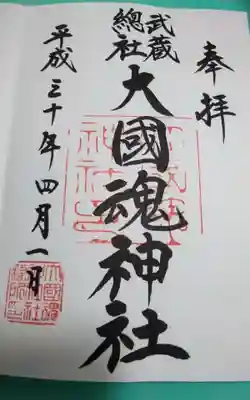 奉拝
武蔵
總社
大國魂神社
平成三十年四月一日